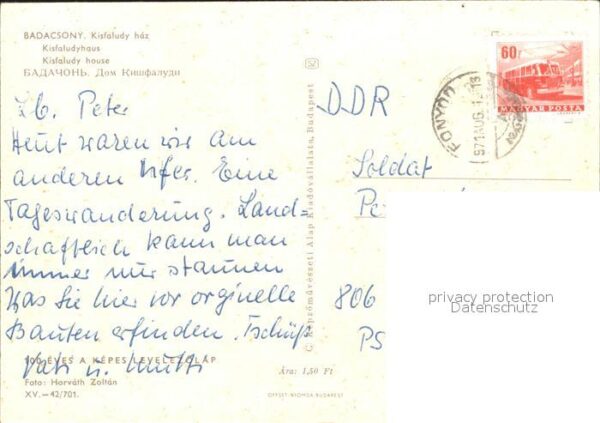 BADACSONY. Kisfaludy ház
Kisfaludyhaus
Kisfaludy house
БАДАЧОНЬ. Дом Кишфалуди
Lb. Peter
Heut waren wir am
anderen Ufer. Eine
Tageswanderung. Land=
schaftlich kann man
immer nur staunen
was Sie hier vor orginelle
Bauten erfinden. Tschüß
Vati u. Mutti
100 ÉVES A KÉPES LEVELEZŐLAP
Foto: Horváth Zoltán
XV.—42/701.
Ára: 1,50 Ft
OFFSET-NYOMDA BUDAPEST
C Képzőművészeti Alap Kiadóvállalata, Budapest
60f
MAGYAR POSTA
FONYÓD
971 AUG. 1
DDR
Soldat
Pe
806
PS
privacy protection
Datenschutz